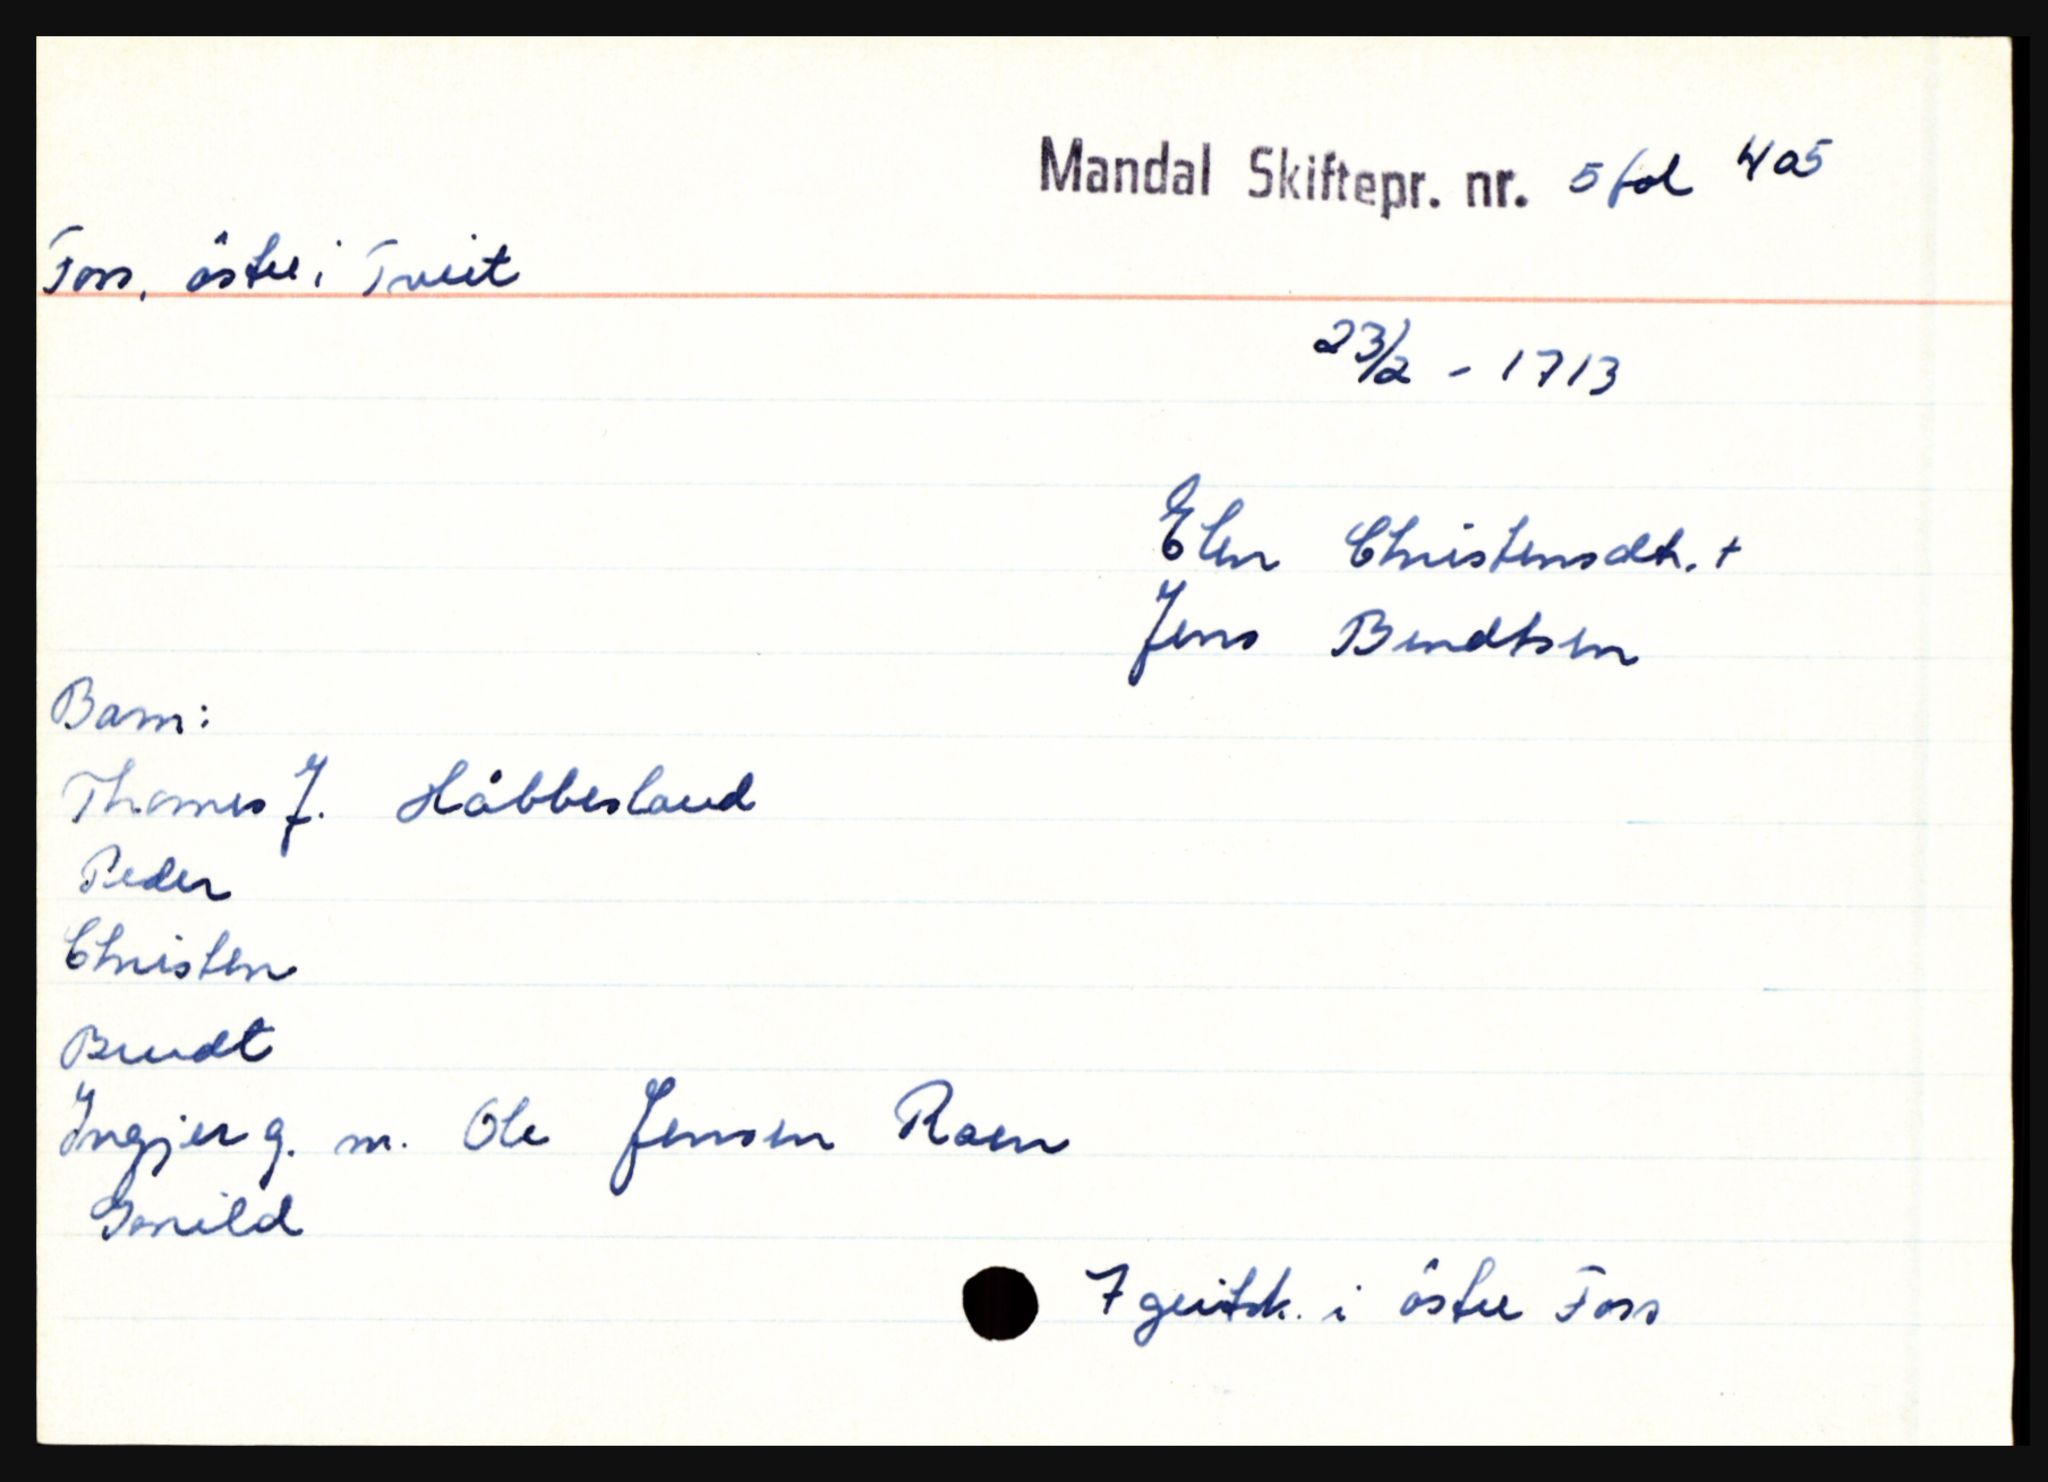 Mandal Skiftepr. nr. 5 fol 405
Foss, östre i Tveit
23/2 - 1713
Elen Christensdtr. +
Jens Bendtsen
Barn:
Thomes J. Håbbesland
Peder
Christen
Bendt
Ingjer g. m. Ole Jensen Roen
Gonild
7 geitsk. i östre Foss